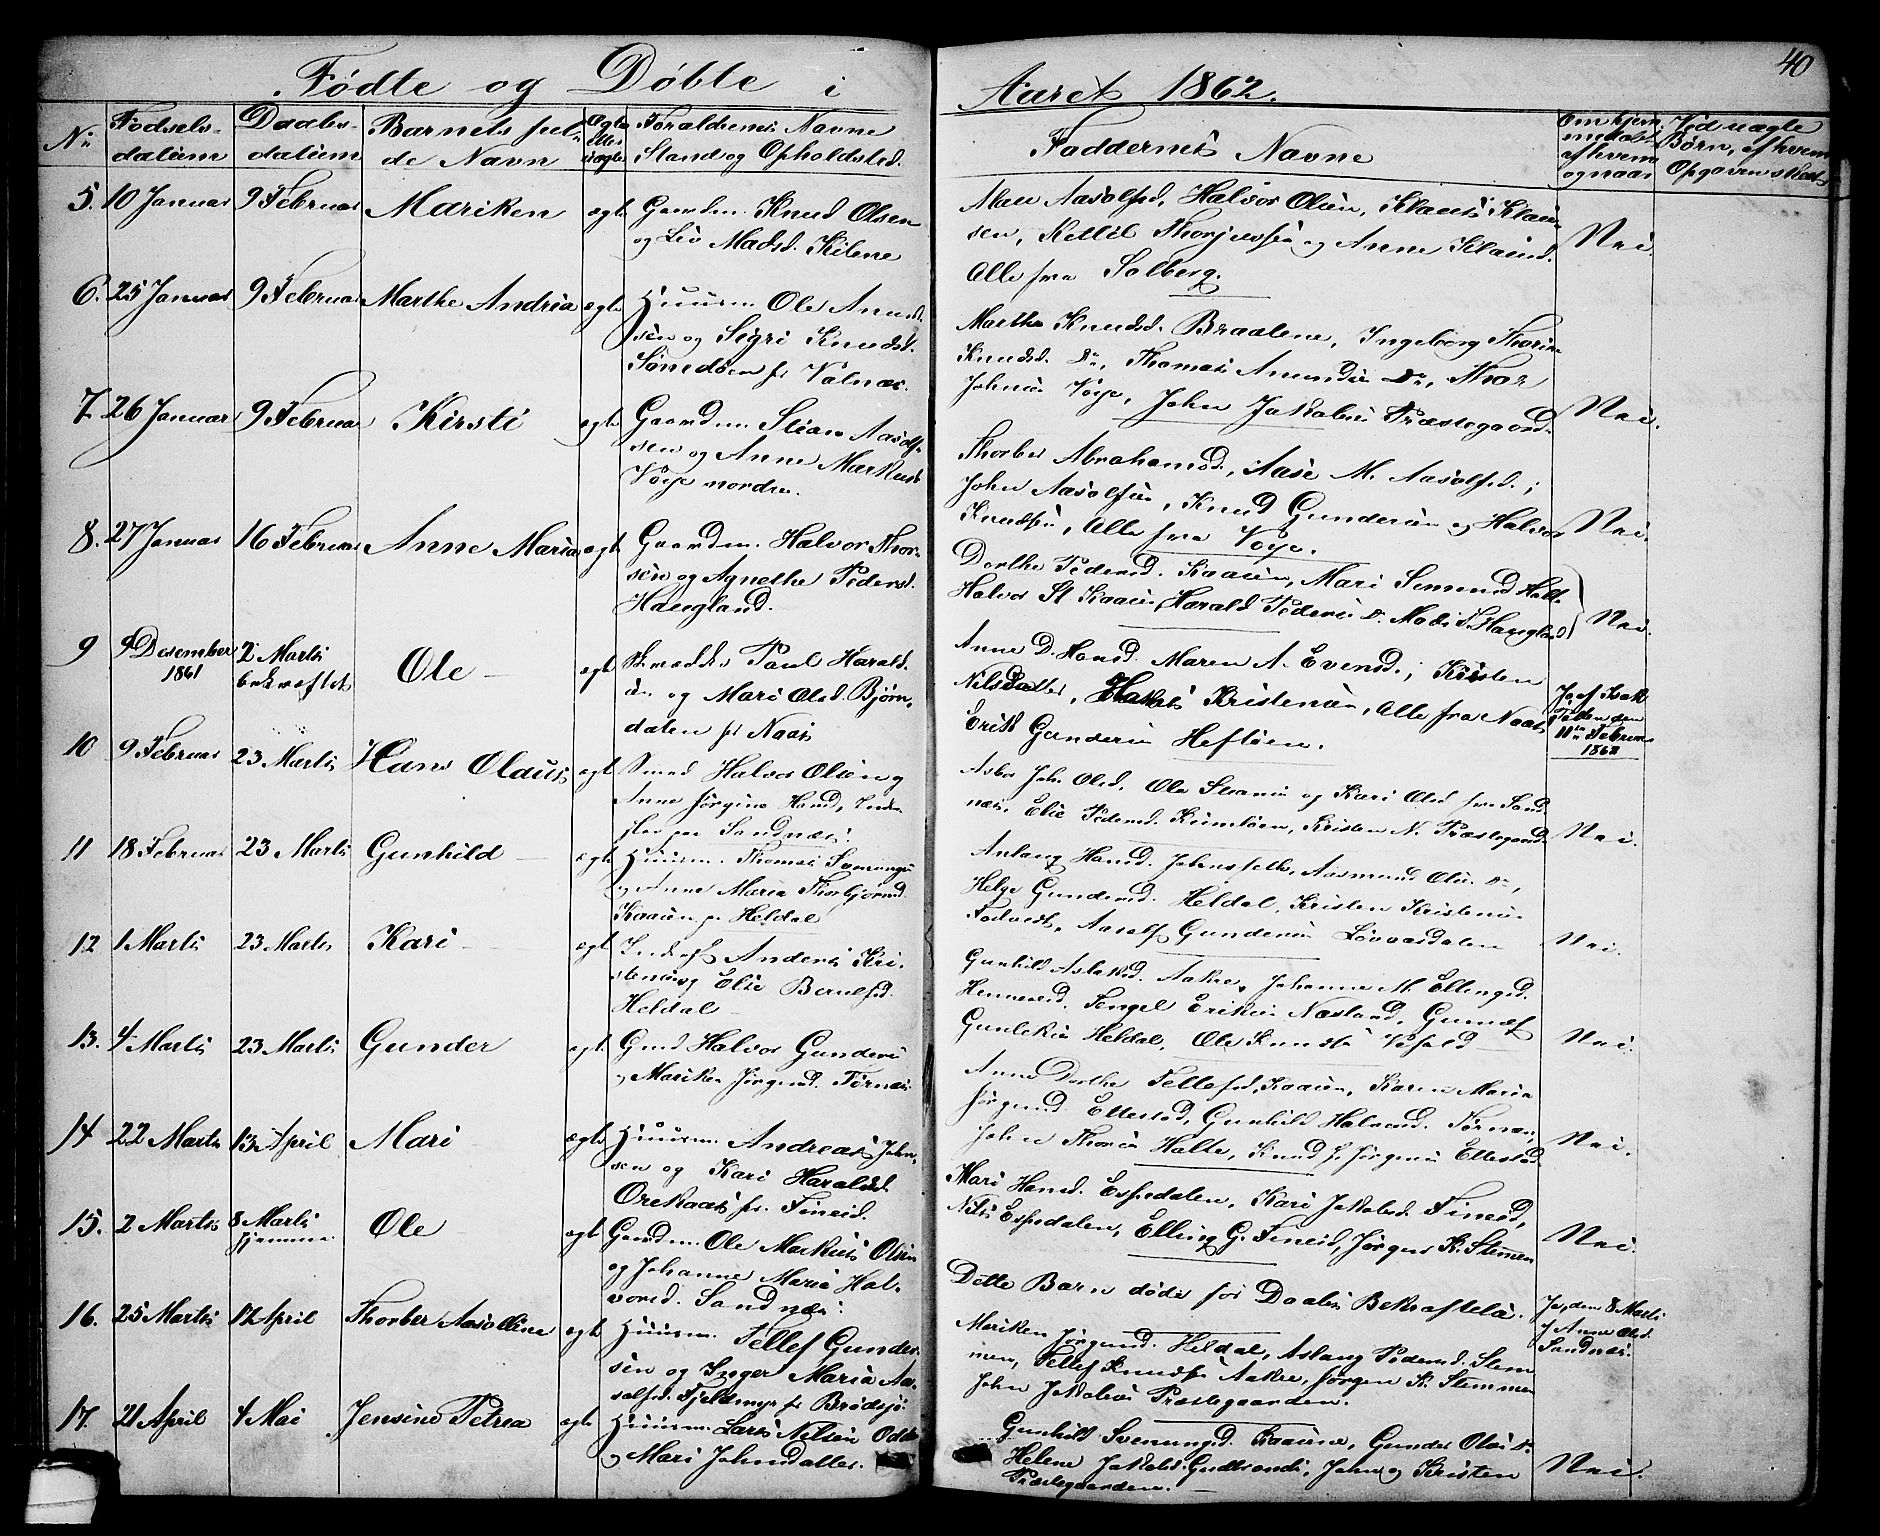 Fødte og Døbte i Aaret 1862.
40
No
Fødsels-
datum
Daabs-
datum
Barnets ful-
de Navn
Ægte
eller
uægte
Forældrenes Navne
Stand og Opholdsted.
Faddernes Navne
Om hjem-
medøbt
af hvem
og naar
Ved uægte
Børn, af hvem
Opgaven skeet
5. 10 Januar 9 Februar Mariken ægte
Gaardm. Knud Olsen
og Liv Madsd. Kilene
Aasolfsd, Halvor Olsen, Klaus Klau-
sen, Kettil og Anne Klausd.
Alle fra Solberg.
Nei.
6. 25 Januar 9 Februar Marthe Andrea ægte
Huusm. Ole Amund-
sen og Sigri Knudsd.
Marthe Knudsd. Braatene, Ingeborg
Knudsd. Do, Thomas Amundsen Do, Thor
Johnsen Voje, John Jakobsen Præstegaard.
Nei.
7. 26 Januar 9 Februar Kirsti ægte
Gaardm. Stian Aasolf-
sen og Anne Markusd.
Voje nordre.
Thorber Abrahamsd., Aase M. Aasolfsd.;
John Aasolfsen, Knud Gundersen og Halvor
Knudsen, Alle fra Voje.
Nei.
8. 27 Januar 16 Februar Anne Maria ægte
Gaardm. Halvor Thor-
sen og Agnethe Pedersd.
Haugland.
Dorthe Pedersd. Kaasen, Mari Simund Halte
Halvor St. Kaasen, Harald Pedersen o. Mads S. Haugland
Nei.
9 9 Desember
1861
2 Marts
bekræftet
Ole ægt
Skrædder Poul Harald-
sen og Mari Olsd. Bjørn-
dalen fr Naas
Anne D. Hansd. Maren A. Evensd.; Kristen
Nilsdatter, Kristensen, Alle fra Naas
Erik Gundersen Heftøen.
Ja af Isak
Tallaksen den
11te Februar
1862
10 9 Februar 23 Marts Hans Olaus ægt
Smed Halvor Olsen og
Anne Jørgine Hansd, Inder-
ster paa Sandnæs.
Asbor Joh. Olsd, Ole og Kari Olsd fra Sand-
næs, Elie Pedersd. Kumløen, Kristen N. Præstegaard.
Nei.
11 18 Februar 23 Marts Gunhild ægt
Huusm. Thomas Svenungs.
og Anne Maria Thorbjørnsd
Kaasen fr Heldal
Aslaug Hansd. Aasmund Olsen Do,
Helge Gundersd. Heldal, Kristen Kristensen
Aasolf Gundersen Løvaasdalen
Nei.
12 1 Marts 23 Marts Kari ægt
Inds. Anders Kri-
stensen og Elie Berulfsd.
Heldal
Gunhild Aslaksd. Aakre, Johanne M. Ellingsd.
Henneseid. Tengel Eriksen Næsland, Gunulf
Gunleksen Heldal, Ole Knudsen Vefald
Nei.
13. 4 Marts 23 Marts Gunder ægt
Gmd. Halvor Gundersen
og Mariken Jørgensd. Tørnæs
Anne Dorthe Tellefsd. Kaasen, Karen Maria
Jørgensd. Ettestad, Gunhild Halvorsd. Tørnæs,
John Thorsen Halte, Knud J. Jørgensen Ettestad
Nei.
14 22 Marts 13 April Mari ægte
Huusm. Andreas John-
sen og Kari Haraldsd.
Orekaas fr. Fineid.
Mari Hansd. Espedalen, Kari Jakobsd. Fineid,
Nils Espedalen, Elling G. Fineid, Jørgen K. Stemmen
Nei.
15. 2 Marts 8 Marts
hjemme
Ole ægt
Gaardm. Ole Markus Olsen
og Johanne Maria Hal-
vorsd. Sandnæs
Dette Barn døde før Daabens Bekræftelse.
Ja, den 8 Marts
af Anne Olsd.
Sandnæs.
16. 25 Marts 12 April Thorber Aasolline ægt
Huusm. Tellef Gunder-
sen og Inger Maria Aa-
solfsd. Fjeldmyr fr Brødsjø
Mariken Jørgensd. Heldal, Aslaug Pedersd. Stem-
men, Tellef Knudsen Aakre, Jørgen K. Stemmen
John Jakobsen Præstegaarden.
17. 21 April 4 Mai Jensine Petrea ægt
Huusm. Lars Nilsen Odde
og Mari Johnsdatter.
Gunhild Svenungsd. Kaasene, Gunder Olsen Do
Helene Jakobs. Gudbrands, John og Kristen
Præstegaarden.
Nei.